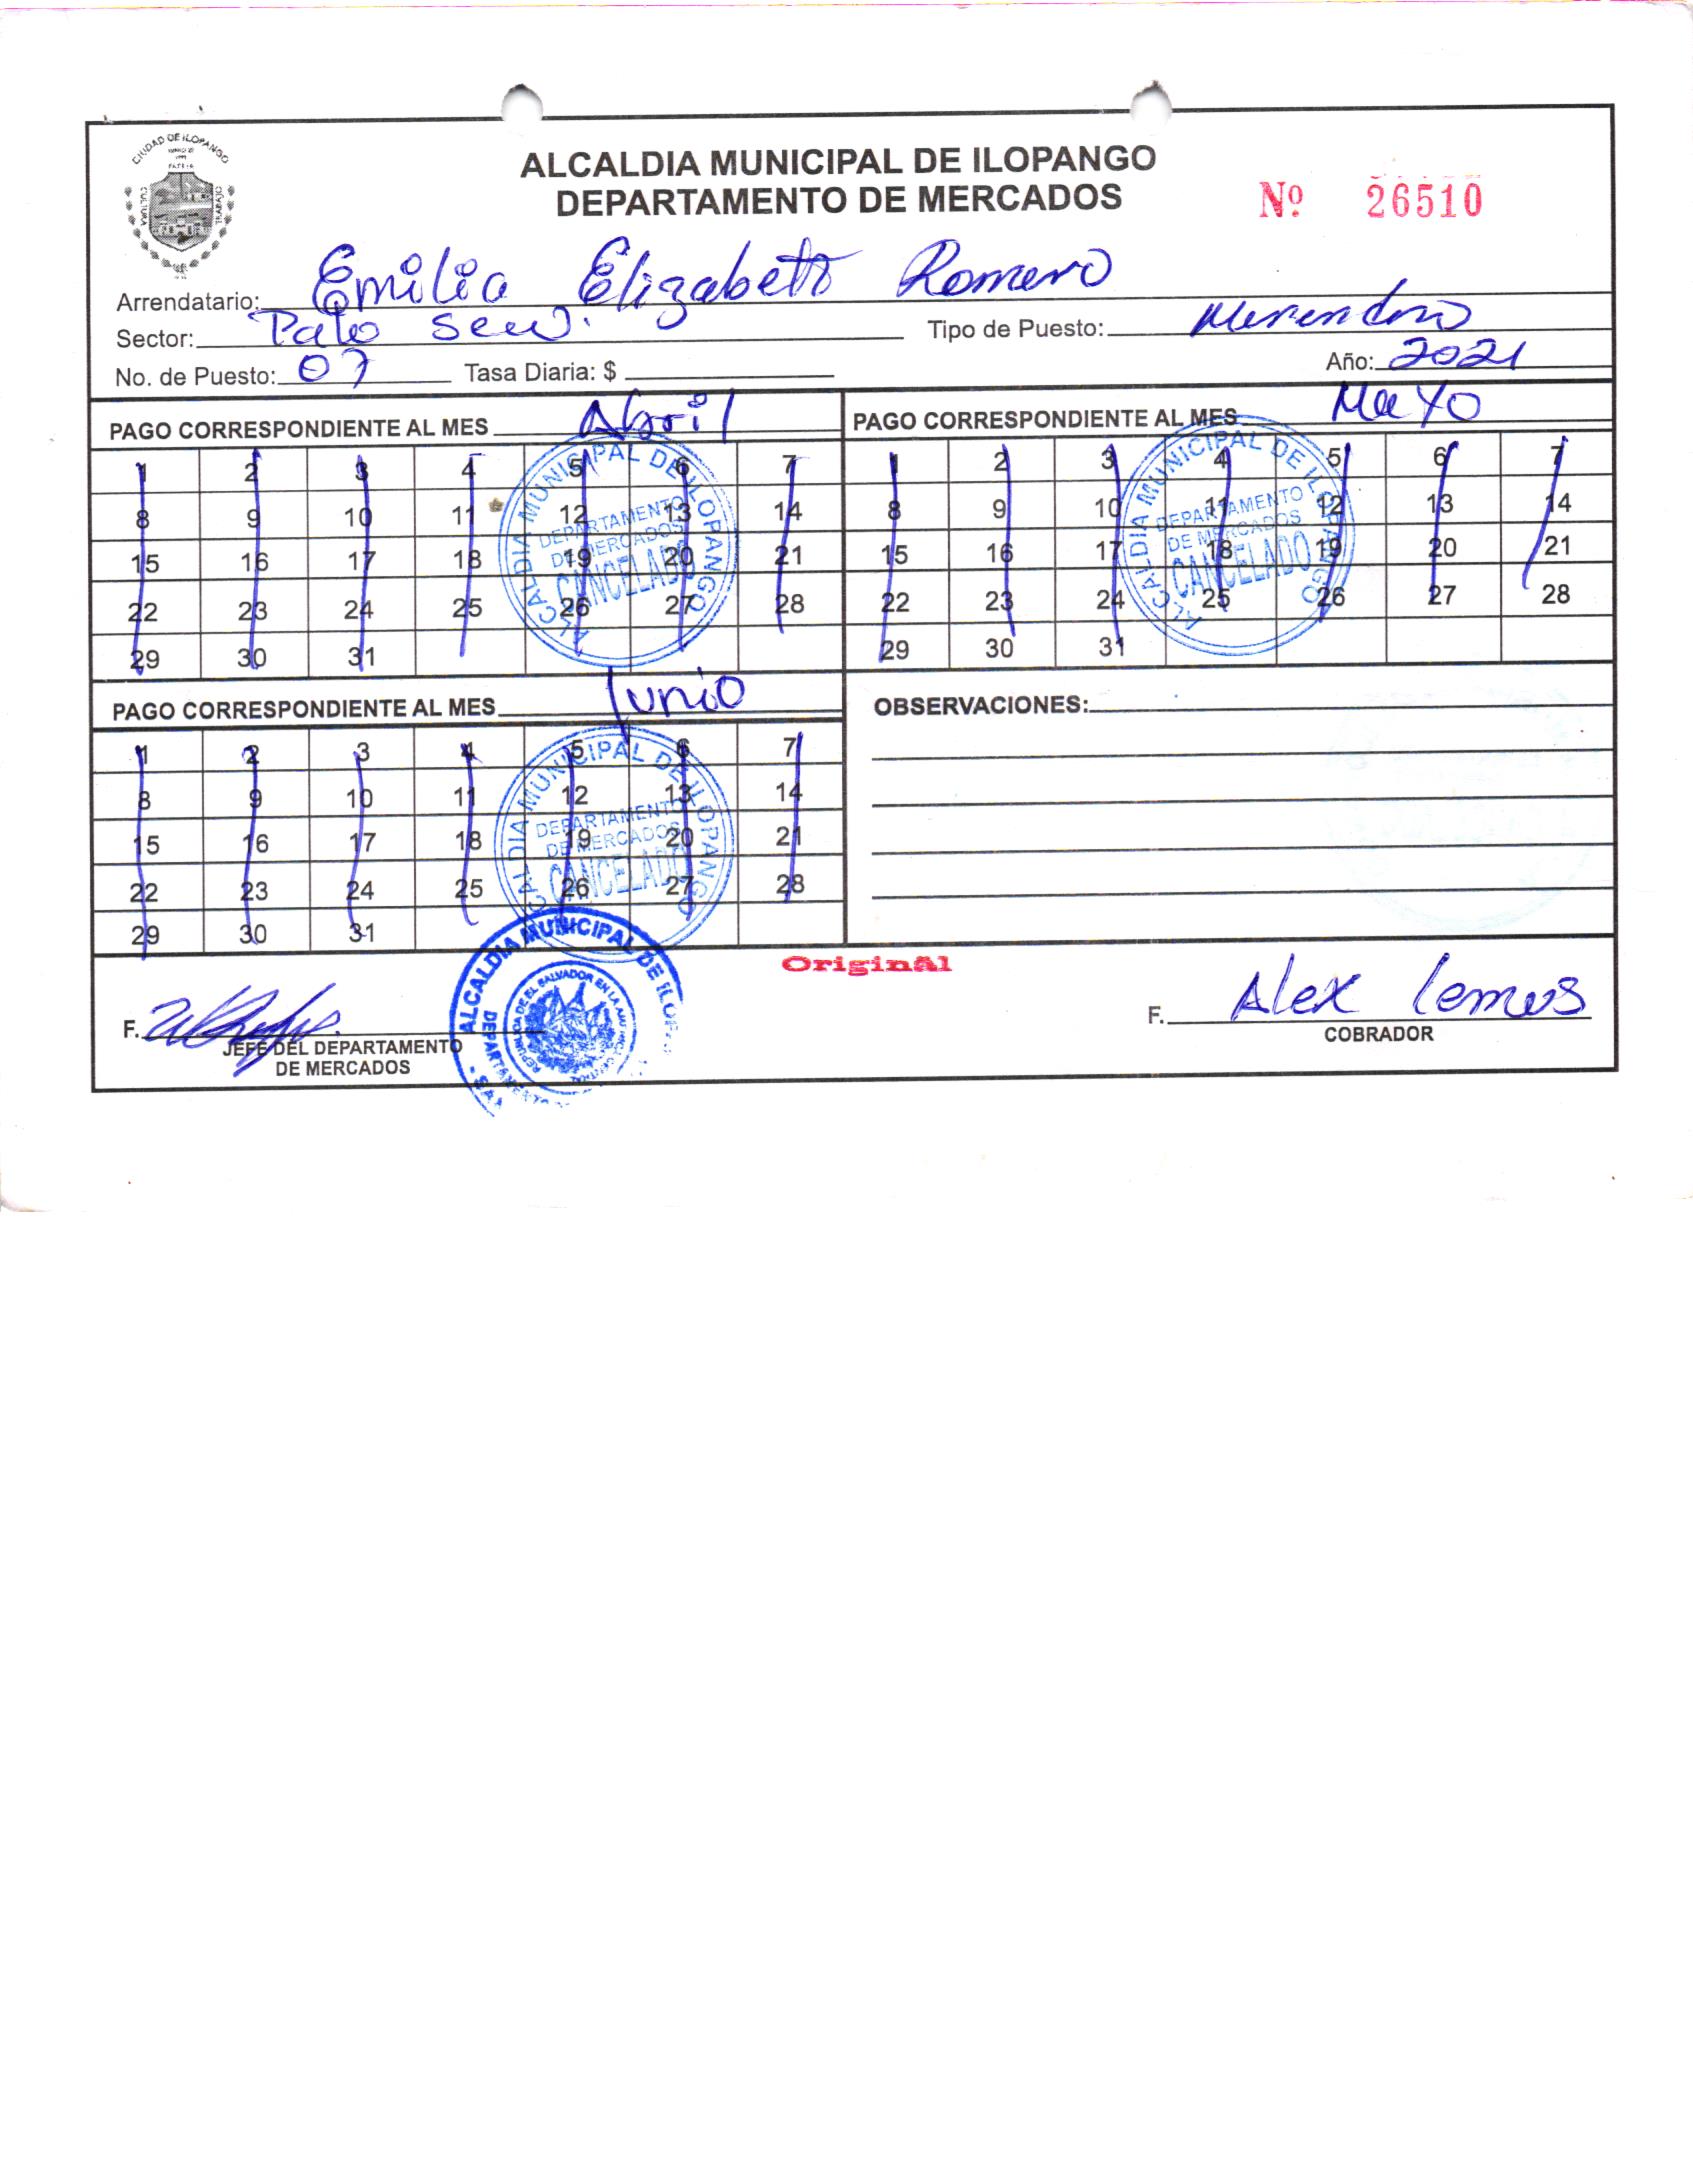 CIUDAD DE ILOPANGO
CULTURA
TRABAJO
ALCALDIA MUNICIPAL DE ILOPANGO
DEPARTAMENTO DE MERCADOS
Nº 26510
Arrendatario: Emilia Elizabeth Romero
Sector: Palo Tipo de Puesto:
No. de Puesto: 07 Tasa Diaria: $ Año: 2021
PAGO CORRESPONDIENTE AL MES Abril
1 2 3 4 5 6 7
8 9 10 11 12 13 14
15 16 17 18 19 20 21
22 23 24 25 26 27 28
29 30 31
ALCALDIA MUNICIPAL DE ILOPANGO
DEPARTAMENTO
DE MERCADOS
CANCELADO
PAGO CORRESPONDIENTE AL MES Mayo
1 2 3 4 5 6 7
8 9 10 11 12 13 14
15 16 17 18 19 20 21
22 23 24 25 26 27 28
29 30 31
ALCALDIA MUNICIPAL DE ILOPANGO
DEPARTAMENTO
DE MERCADOS
CANCELADO
PAGO CORRESPONDIENTE AL MES Junio
1 2 3 4 5 6 7
8 9 10 11 12 13 14
15 16 17 18 19 20 21
22 23 24 25 26 27 28
29 30 31
ALCALDIA MUNICIPAL DE ILOPANGO
DEPARTAMENTO
DE MERCADOS
CANCELADO
OBSERVACIONES:
OriginAl
F.
JEFE DEL DEPARTAMENTO
DE MERCADOS
ALCALDIA MUNICIPAL DE
F. Alex Lemus
COBRADOR